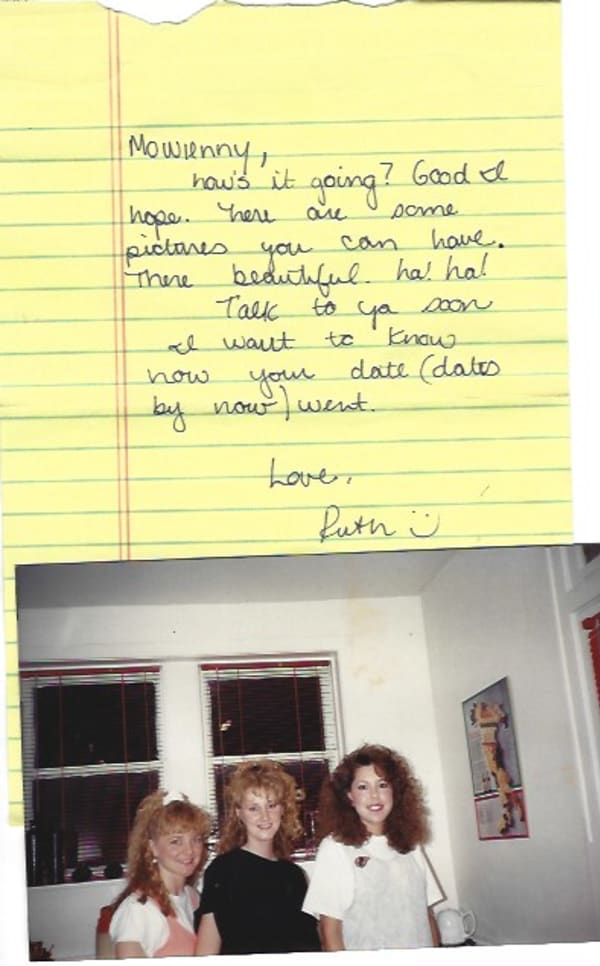 Mowrenny,
how's it going? Good I
hope. here are some
pictures you can have.
There beautiful. ha! ha!
Talk to ya soon
I want to know
how your date (dates
by now) went.
Love,
Ruth